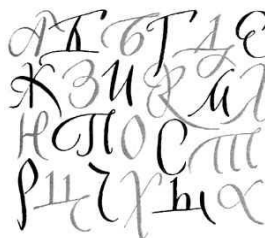 А Б Б Г Д Е
Ж З И К М
Н П О С Т
Р Ц Ч Х